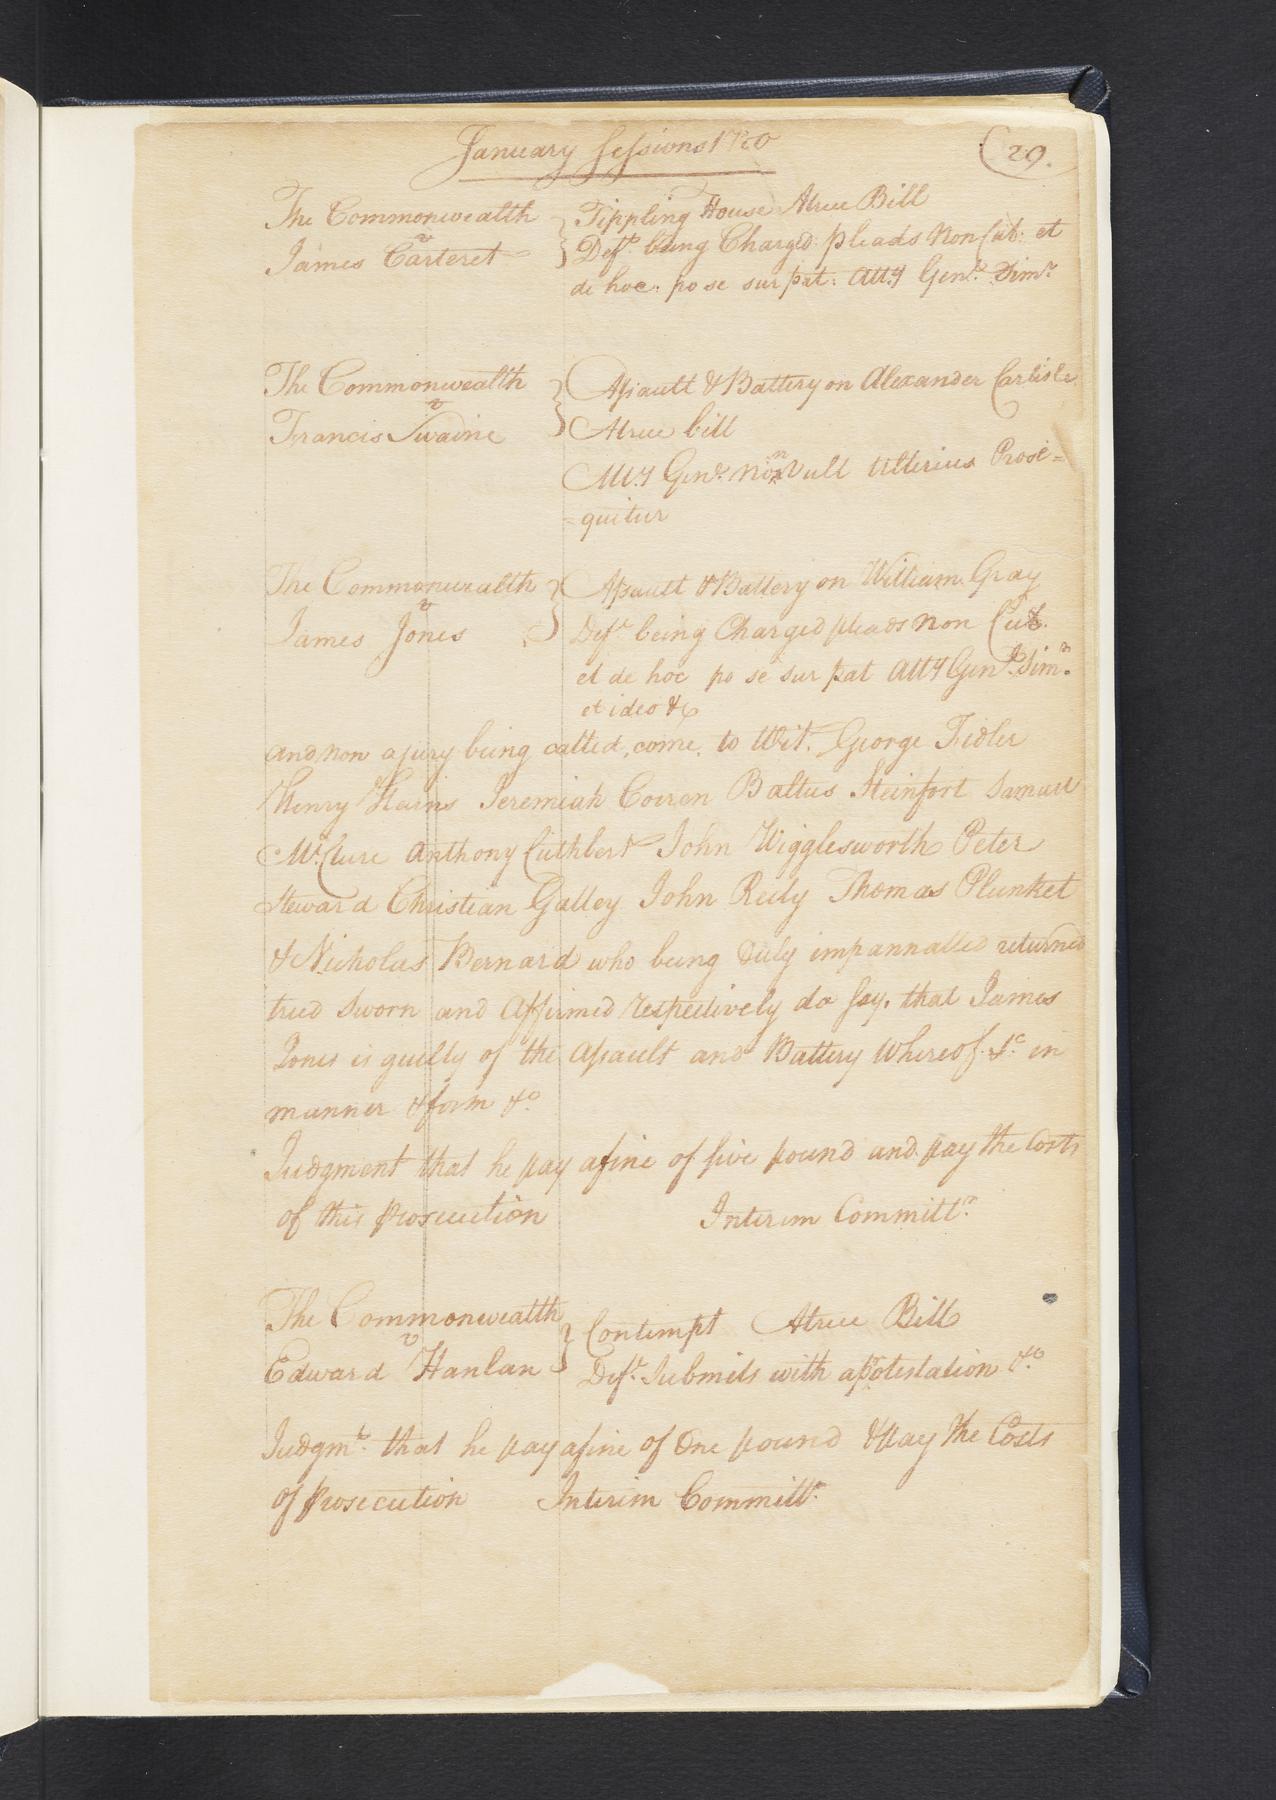 January Sessions 1780
(29.
The Commonwealth
v
James Carteret
Tippling House A true Bill
Deft. being Charged pleads Non Cul: et
de hoc po se sur pat: Atty Genl. Simr
The Commonwealth
v
Francis Swaine
Assault & Battery on Alexander Carlisle
A true bill
Atty Genl. non Vult Ulterius Prose=
=quitur
The Commonwealth
v
James Jones
Assault & Battery on William Gray
Deft being Charged pleads non Cul.
et de hoc po se sur pat Atty Genl. Simr.
et ideo &c
and now a jury being called, come, to Wit. George Fidler
Henry Hains Jeremiah Coiren Baltus Steinfort Samuel
McClure Anthony Cuthbert John Wigglesworth Peter
Steward Christian Galley John Redy Thomas Plunket
& Nicholas Bernard who being duly impannalled returned
tried Sworn and Affirmed respectively do say, that James
Jones is guilty of the Assault and Battery Whereof &c. in
manner & form &c
Judgment that he pay a fine of five pound and pay the Costs
of this prosecution Interim Committr.
The Commonwealth
v
Edward Hanlan
Contempt A true Bill
Deft. Submits with a protestation &c
Judgmt. that he pay a fine of One pound & pay the Costs
of Prosecution Interim Committr.